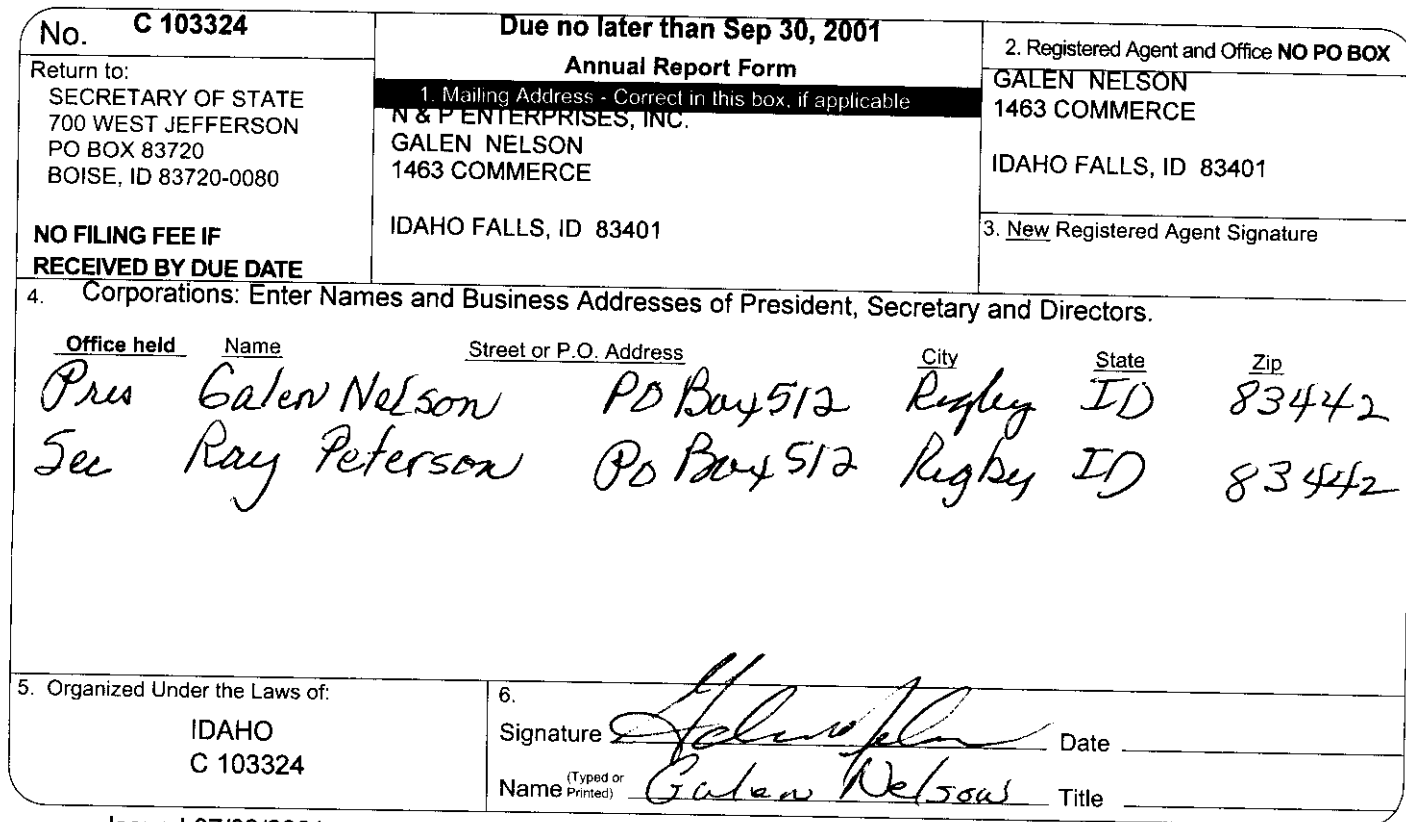 No. C 103324
Return to:
SECRETARY OF STATE
700 WEST JEFFERSON
PO BOX 83720
BOISE, ID 83720-0080
NO FILING FEE IF
RECEIVED BY DUE DATE
Due no later than Sep 30, 2001
Annual Report Form
1. Mailing Address - Correct in this box, if applicable
N & P ENTERPRISES, INC.
GALEN NELSON
1463 COMMERCE
IDAHO FALLS, ID 83401
2. Registered Agent and Office NO PO BOX
GALEN NELSON
1463 COMMERCE
IDAHO FALLS, ID 83401
3. New Registered Agent Signature
4. Corporations: Enter Names and Business Addresses of President, Secretary and Directors.
Office held Name Street or P.O. Address City State Zip
Pres Galen Nelson PO Box 512 Rigby ID 83442
Sec Ray Peterson PO Box 512 Rigby ID 83442
5. Organized Under the Laws of:
IDAHO
C 103324
6.
Signature Galen Nelson Date
Name (Typed or Printed) Galen Nelson Title